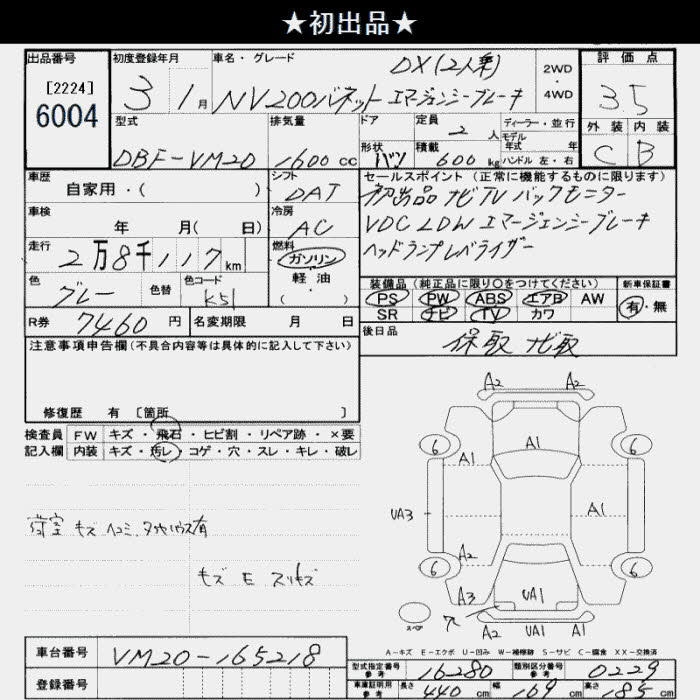 ★初出品★
出品番号 初度登録年月 車名・グレード 2WD ・ 4WD 評価点
[2224]
6004
3 1月 NV200バネット DX(2人乗) エマージェンシーブレーキ 3.5
型式 排気量 ドア 形状 定員 2人 ディーラー・並行 外装 内装
モデル年式 年
DBF-VM20 1600cc バン 積載 600kg ハンドル 左・右 C B
車歴 シフト セールスポイント (正常に機能するものに限ります)
自家用・( ) DAT 初出品 ナビTV バックモニター
車検 冷房 VDC LDW エマージェンシーブレーキ
年 月( 日) AC ヘッドランプレベライザー
走行 2万8千117km 燃料 ガソリン
軽油
・( )
色 グレー 色替 色コード K51
装備品(純品に限り○をつけてください) 新車保証書
PS PW ABS エアB AW 有・無
SR ナビ TV カワ
R券 7460円 名変期限 月 日 後日品 保取 ナビ取
注意事項申告欄(不具合内容等は具体的に記入して下さい)
修復歴 有 [箇所 ]
検査員 FW キズ・飛石・ヒビ割・リペア跡・×要
記入欄 内装 キズ・汚レ・コゲ・穴・スレ・キレ・破レ
荷室 キズ ヘコミ、タイヤハウス有
キズ E スリキズ
A2 A2
6 A1 6
A1
UA3 A1
A2
6 6
A3 UA1
スペア ア
A2 UA1 A1
A-キズ E-エクボ U-凹み W-補修跡 S-サビ C-腐食 XX-交換済
車台番号 VM20-165218
型式指定番号 参考 16280 類別区分番号 参考 0229
登録番号
車庫証明用 参考 長さ 440cm 幅 169cm 高さ 185cm